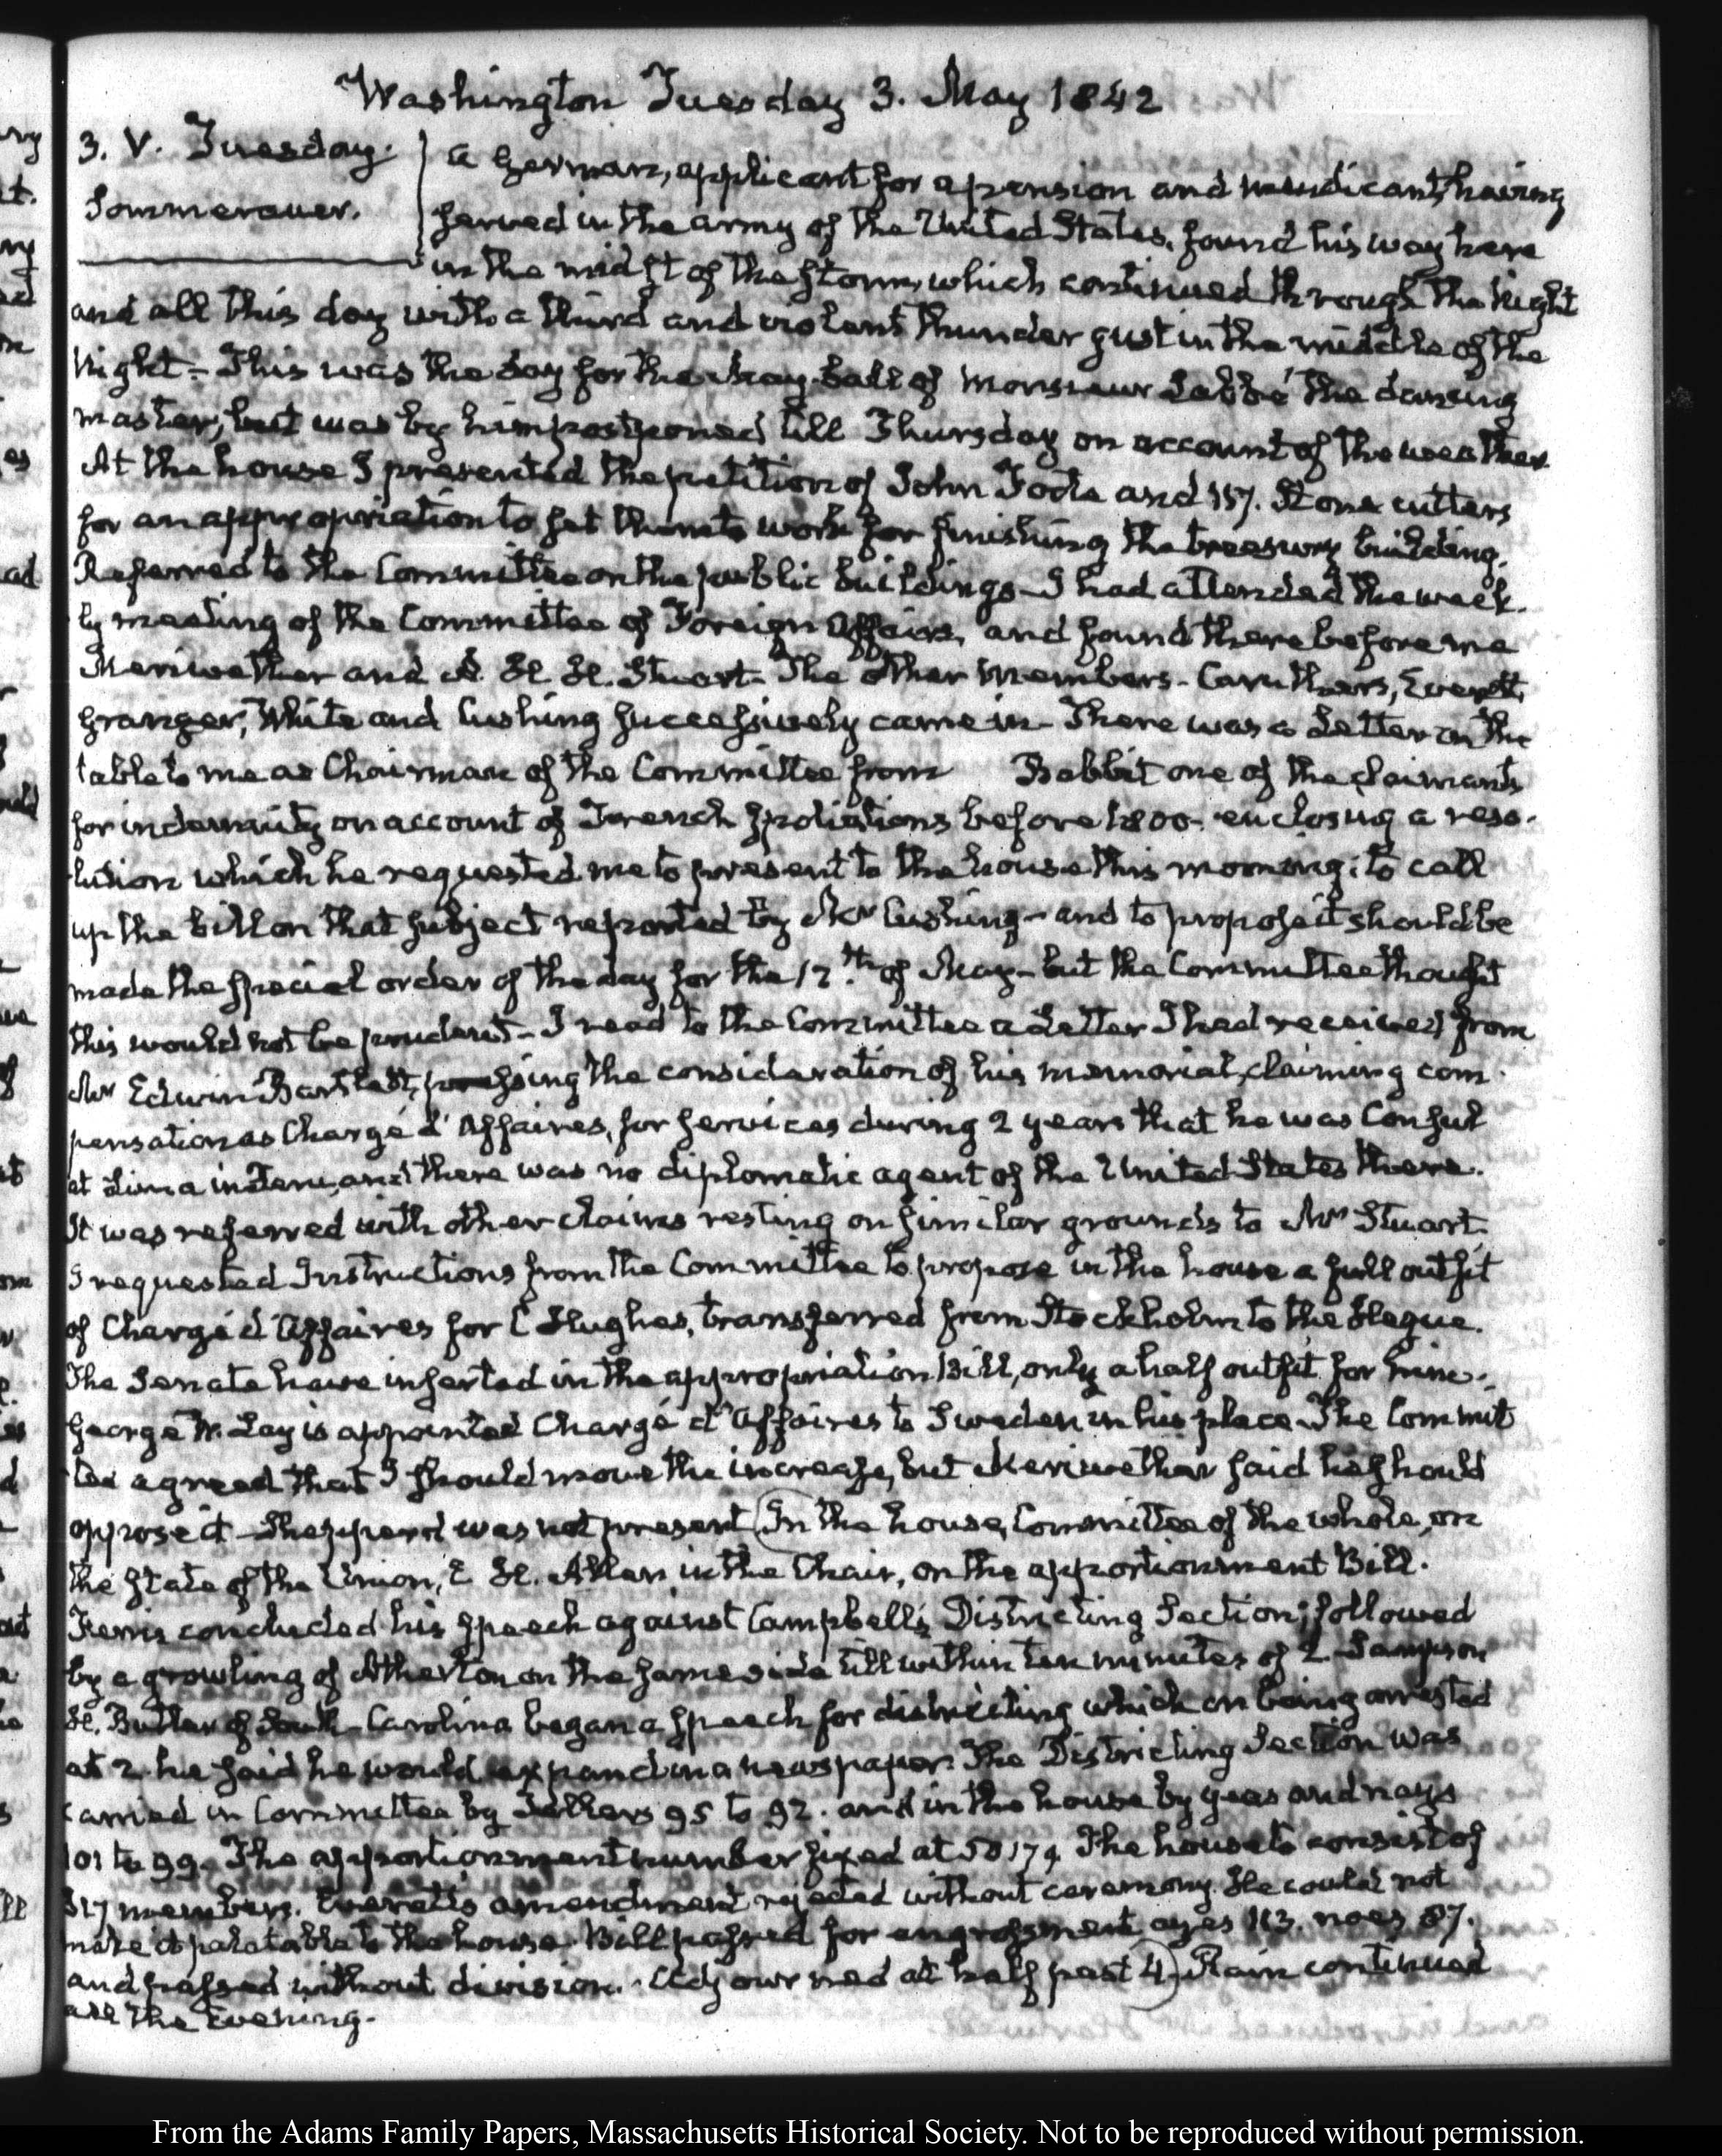 Washington Tuesday 3. May 1842
3. V. Tuesday.
Sommerauer.
A German, applicant for a pension and mendicant, having
served in the army of the United States, found his way here
in the midst of the storm, which continued through the Night
and all this day with a third and violent thunder gust in the middle of the
Night - This was the day for the May-ball of Monsieur Labbé the dancing
master, but was by him postponed till Thursday on account of the weather
At the house I presented the petition of John Foote and 157. Stone cutters
for an appropriation to set them to work for finishing the treasury building.
Referred to the Committee on the public buildings - I had attended the week-
ly meeting of the Committee of Foreign Affairs, and found there before me
Meriwether and A. H. H. Stuart - The other members - Caruthers, Everett,
Granger, White and Cushing successively came in - There was a Letter on the
table to me as Chairman of the Committee from Babbit one of the claimants
for indemnity on account of French spoliations before 1800. enclosing a reso-
lution which he requested me to present to the house this morning: to call
up the bill on that subject reported by Mr Cushing - and to propose it should be
made the special order of the day for the 12th. of May - but the Committee thought
this would not be prudent - I read to the Committee a Letter I had received from
Mr Edwin Bartlett, pressing the consideration of his memorial, claiming com-
pensation as Chargé d'Affaires, for services during 2 years that he was Consul
at Lima in Peru, and there was no diplomatic agent of the United States there.
It was referred with other claims resting on similar grounds to Mr Stuart.
I requested Instructions from the Committee to propose in the house a full outfit
of Chargé d'Affaires for C Hughes, transferred from Stockholm to the Hague.
The Senate have inserted in the appropriation Bill, only a half outfit for him.
George W. Lay is appointed Chargé d'Affaires to Sweden in his place - The Commit
tee agreed that I should move the increase, but Meriwether said he should
oppose it - Shepperd was not present (In the house, Committee of the whole, on
the state of the Union, E. H. Allen in the Chair, on the apportionment Bill.
Ferris concluded his speech against Campbell's Districting Section; followed
by a growling of Atherton on the same side till within ten minutes of 2. Sampson
H. Butler of South-Carolina began a speech for districting which on being arrested
at 2. he said he would expand in a newspaper. The Districting Section was
carried in Committee by Tellers 95 to 92. and in the house by yeas and nays
101 to 99. The apportionment number fixed at 50179. The house to consist of
217 members. Everett's amendment rejected without ceremony. He could not
make it palatable to the house. Bill passed for engrossment ayes 113. noes 87.
and passed without division. - Adjourned at half past 4) Rain continued
all the Evening.
From the Adams Family Papers, Massachusetts Historical Society. Not to be reproduced without permission.